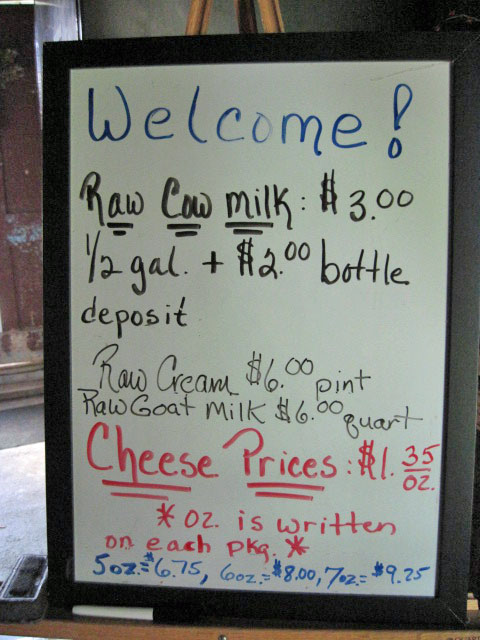 Welcome!
Raw Cow milk: $3.00
1/2 gal. + $2.00 bottle
deposit
Raw Cream $6.00 pint
Raw Goat Milk $6.00 quart
Cheese Prices: $1.35/oz.
* oz. is written
on each pkg. *
5oz.=$6.75, 6oz.=$8.00, 7oz.=$9.25